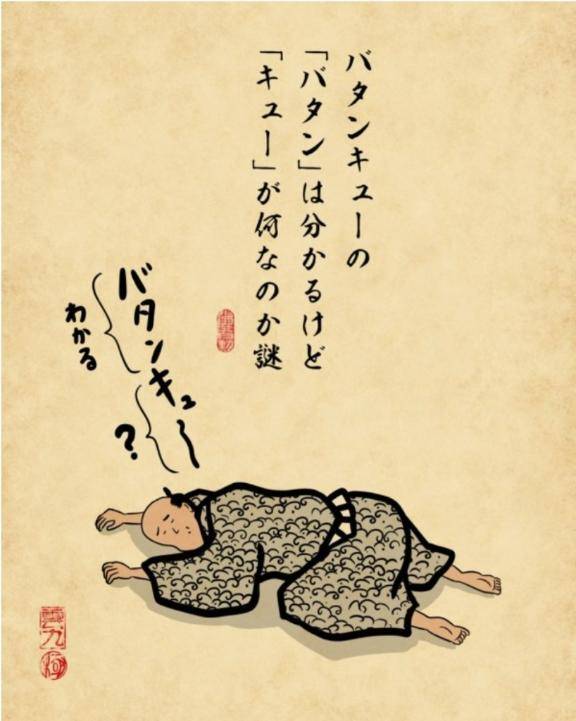 バタンキューの
「バタン」は分かるけど
「キュー」が何なのか謎
バタンキュ〜
わかる
?